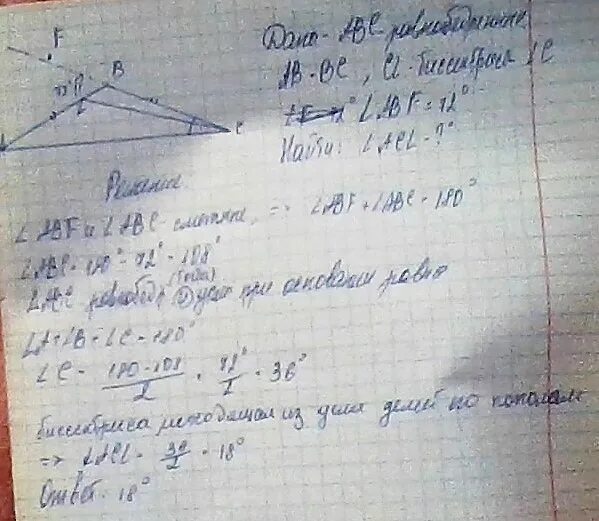 F
Дано - ABC равнобедренный
72° B
AB = BC, CL - биссектриса ∠C
L
∠ABF = 72°
C
Найти: ∠ACL - ?°
Решение
∠ABF и ∠ABC смежные, => ∠ABF + ∠ABC = 180°
∠ABC = 180° - 72° = 108°
ABC равнобедр. углы при основании равны
∠A + ∠B + ∠C = 180°
∠C = 180-108/2 = 72°/2 = 36°
биссектриса исходящая из угла делит по пополам
=> ∠ACL = 36/2 = 18°
Ответ: 18°